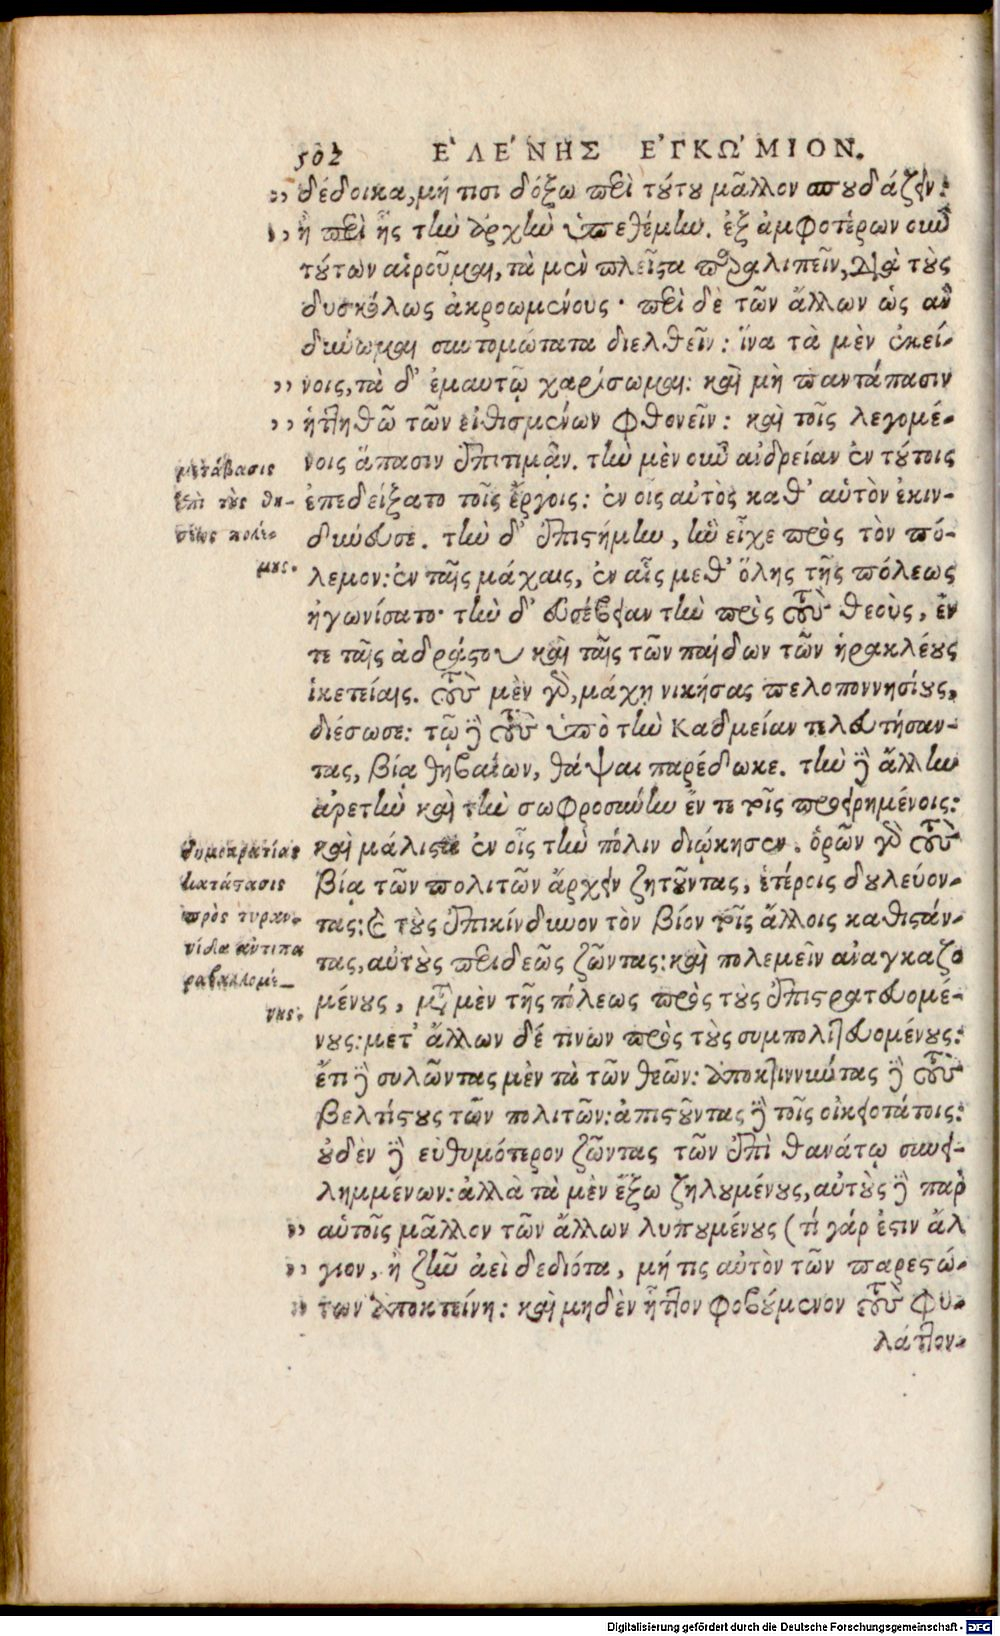 502 ἙΛΈΝΗΣ ἘΓΚΏΜΙΟΝ.
δέδοικα, μή τισι δόξω περὶ τούτου μᾶλλον σπουδάζειν:
ἢ περὶ ἧς τὴν ἀρχὴν ὑπεθέμην. ἐξ ἀμφοτέρων οὖν
τούτων αἱροῦμαι, τὰ μὲν πλεῖστα παραλιπεῖν, διὰ τοὺς
δυσκόλως ἀκροωμένους· περὶ δὲ τῶν ἄλλων ὡς ἂν
δύνωμαι συντομώτατα διελθεῖν: ἵνα τὰ μὲν ἐκεί-
νοις, τὰ δ' ἐμαυτῷ χαρίσωμαι: καὶ μὴ παντάπασιν
ἡττηθῶ τῶν εἰθισμένων φθονεῖν: καὶ τοῖς λεγομέ-
νοις ἅπασιν ἐπιτιμᾶν. τὴν μὲν οὖν ἀνδρείαν ἐν τούτοις
ἐπεδείξατο τοῖς ἔργοις: ἐν οἷς αὐτὸς καθ' αὑτὸν ἐκιν-
δύνευσε. τὴν δ' ἐπιστήμην, ἣν εἶχε πρὸς τὸν πό-
λεμον: ἐν ταῖς μάχαις, ἐν αἷς μεθ' ὅλης τῆς πόλεως
ἠγωνίσατο· τὴν δ' εὐσέβειαν τὴν πρὸς τοὺς θεοὺς, ἔν
τε ταῖς ἀδράστου καὶ ταῖς τῶν παίδων τῶν ἡρακλέους
ἱκετείαις. τοὺς μὲν γὰρ, μάχῃ νικήσας πελοποννησίους,
διέσωσε: τῷ δὲ τοὺς ὑπὸ τὴν Καδμείαν τελευτήσαν-
τας, βίᾳ θηβαίων, θάψαι παρέδωκε. τὴν δὲ ἄλλην
ἀρετὴν καὶ τὴν σωφροσύνην ἔν τε τοῖς προειρημένοις:
καὶ μάλιστα ἐν οἷς τὴν πόλιν διῴκησεν. ὁρῶν γὰρ τοὺς
βίᾳ τῶν πολιτῶν ἄρχειν ζητοῦντας, ἑτέροις δουλεύον-
τας: καὶ τοὺς ἐπικίνδυνον τὸν βίον τοῖς ἄλλοις καθιστάν-
τας, αὐτοὺς περιδεῶς ζῶντας: καὶ πολεμεῖν ἀναγκαζο
μένους, μετὰ μὲν τῆς πόλεως πρὸς τοὺς ἐπιστρατευομέ-
νους: μετ' ἄλλων δέ τινων πρὸς τοὺς συμπολιτευομένους:
ἔτι δὲ συλῶντας μὲν τὰ τῶν θεῶν: ἀποκτιννύντας δὲ τοὺς
βελτίστους τῶν πολιτῶν: ἀπιστοῦντας δὲ τοῖς οἰκειοτάτοις:
οὐδὲν δὲ εὐθυμότερον ζῶντας τῶν ἐπὶ θανάτῳ συνει-
λημμένων: ἀλλὰ τὰ μὲν ἔξω ζηλουμένους, αὐτοὺς δὲ παρ'
αὑτοῖς μᾶλλον τῶν ἄλλων λυπουμένους (τί γάρ ἐστιν ἄλ
γιον, ἢ ζῆν ἀεὶ δεδιότα, μή τις αὐτὸν τῶν παρεστώ-
των ἀποκτείνῃ: καὶ μηδὲν ἧττον φοβούμενον τοὺς φυ-
λάττον-
μετάβασις
ἐπὶ τοὺς θη-
σέως πολέ-
μους.
δημοκρατίας
κατάστασις
πρὸς τυραν-
νίδα ἀντιπα
ραβαλλομέ-
νης.
Digitalisierung gefördert durch die Deutsche Forschungsgemeinschaft - DFG